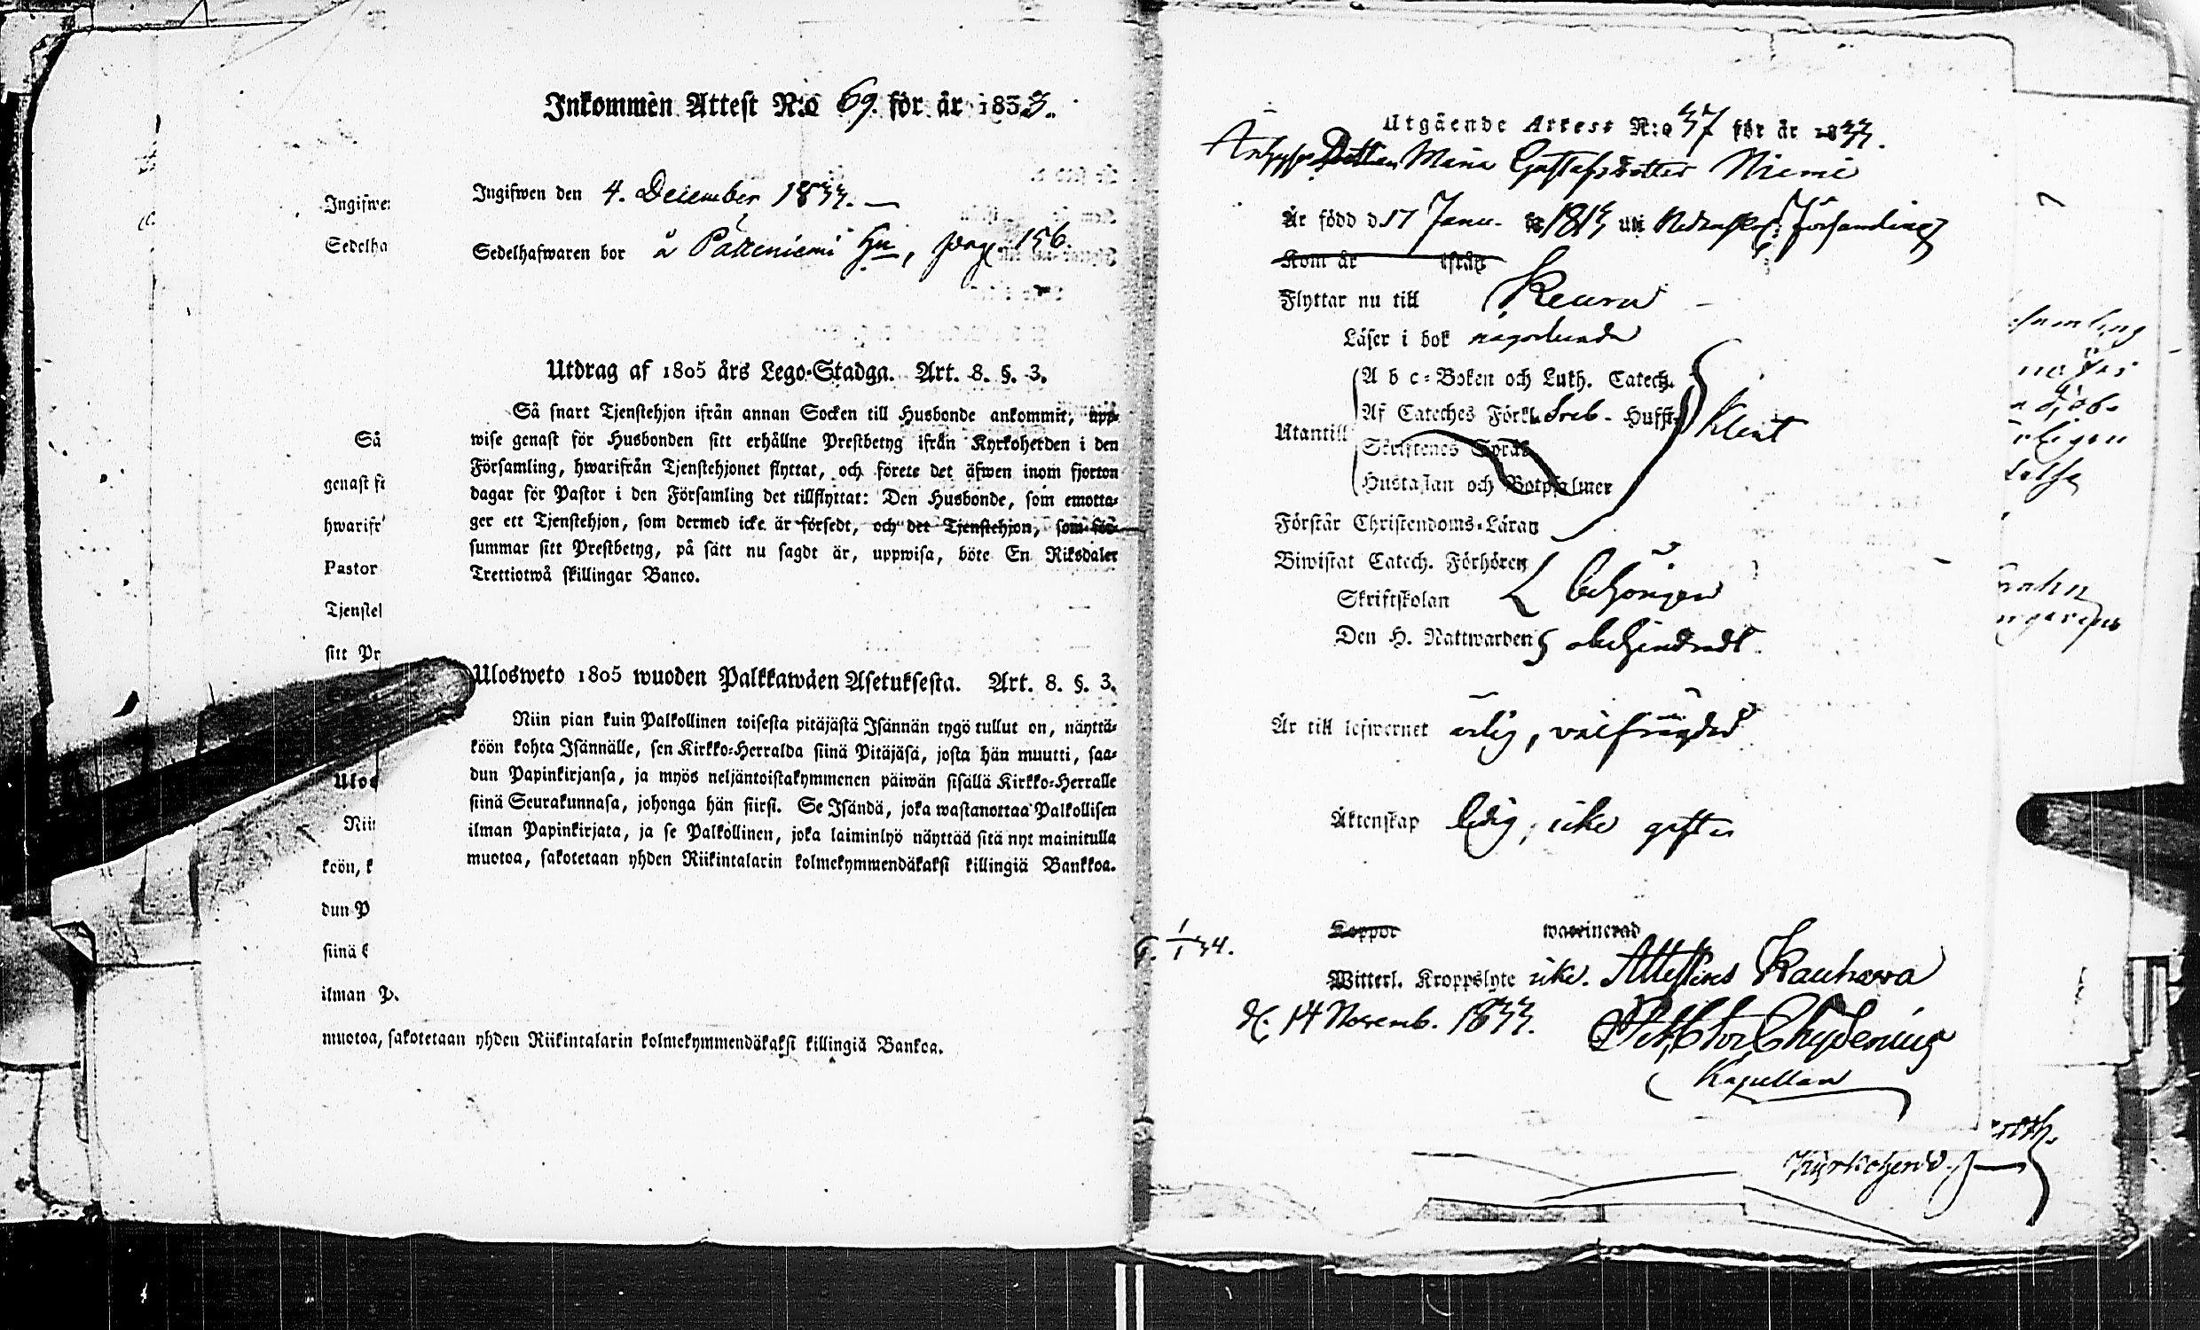 Inkommen Attest N:o 69. för år 1833.
Ingifwen den 4. December 1833.
Sedelhafwaren bor å Pakkeniemi Hn, pag. 156.
Utdrag af 1805 års Lego-Stadga. Art. 8. §. 3.
Så snart Tjenstehjon ifrån annan Socken till Husbonde ankommit, upp-
wise genast för Husbonden sitt erhållne Prestbetyg ifrån Kyrkoherden i den
Församling, hwarifrån Tjenstehjonet flyttat, och förete det äfwen inom fjorton
dagar för Pastor i den Församling det tillflyttat: Den Husbonde, som emotta-
ger ett Tjenstehjon, som dermed icke är försedt, och det Tjenstehjon, som för-
summar sitt Prestbetyg, på sätt nu sagdt är, uppwisa, böte En Riksdaler
Trettiotwå skillingar Banco.
Ulosweto 1805 wuoden Palkkawäen Asetuksesta. Art. 8. §. 3.
Niin pian kuin Palkollinen toisesta pitäjästä Isännän tygö tullut on, näyttä-
köön kohta Isännälle, sen Kirkko-Herralda siinä Pitäjäsä, josta hän muutti, saa-
dun Papinkirjansa, ja myös neljäntoistakymmenen päiwän sisällä Kirkko-Herralle
siinä Seurakunnasa, johonga hän siirsi. Se Isändä, joka wastanottaa Palkollisen
ilman Papinkirjata, ja se Palkollinen, joka laiminlyö näyttää sitä nyt mainitulla
muotoa, sakotetaan yhden Riikintalarin kolmekymmendäkaksi killingiä Bankkoa.
Ingifwe
Sedelha
Så
genast fö
hwarifr
Pastor
Tjenstel
sitt Pr
Ulos
Niin
köön, k
dun P
siinä S
ilman P
muotoa, sakotetaan yhden Riikintalarin kolmekymmendäkaksi killingiä Bankoa.
Utgående Attest N:o 37 för år 1833.
Maria Gustafsdotter Niemi
Är född d. 17 Janu. 1813 uti Församling
Kom år ifrån
Flyttar nu till Keuru
Läser i bok någorlunda
Utantill
A b c-Boken och Luth. Catech.
Af Cateches Förkl. Sveb. Hufst.
Skriftenes Språk
Hustaflan och Botpsalmer
Klent
Förstår Christendoms-Läran
Biwistat Catech. Förhören
Skriftskolan behörigen
Den H. Nattwarden obehindradt
Är till lefwernet ärlig, välfrägdad
Äktenskap ledig, icke gift
Koppor waccinerad
Witterl. Kroppslyte icke. Attesteras Kauhava
d. 14 Novemb. 1833.
Chydenius
Kapellan
Kyrkoherd.